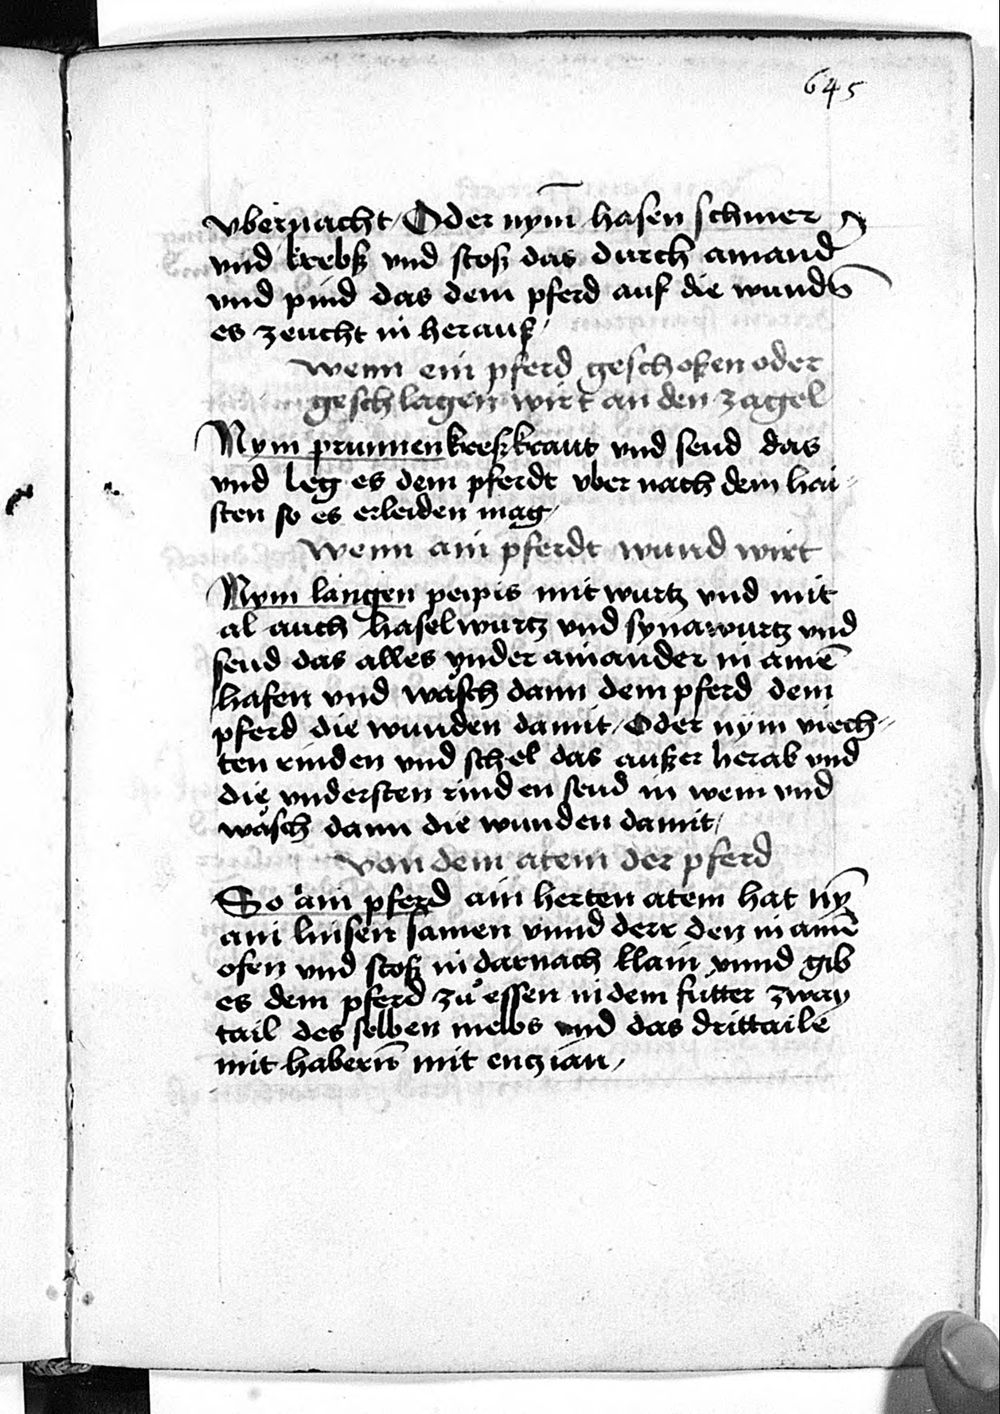 645
vbernacht / Oder nym̄ hasen schmer
vnd krebß vnd stoß das durch ainand
vnd pind das dem pferd auf die wunden
es zeucht in herauß /
wenn ein pferd geschoßen oder
geschlagen wirt an den zagel
Nym prunnenkreßkraut vnd seud das
vnd leg es dem pferdt vber nach dem hai-
sten so es erleiden mag /
wenn ain pferdt wund wirt
Nym langen peipis mit wurtz vnd mit
al auch haselwurtz vnd synawurtz vnd
seud das alles vnder ainander in ainē
hafen vnd wäsch dann dem pferd dem
pferd die wunden damit / Oder nym viech-
ten rinden vnd schel das außer herab vnd
die vndersten rinden seud in wein vnd
wäsch dann die wunden damit /
von dem atem der pferd
So ain pferd ain herten atem hat nȳ
ain linsen samen vnnd derr den in ainē
ofen vnd stoß in darnach klain vnnd gib
es dem pferd zů essen in dem futter zway
tail des selben melbs vnd das drittaile
mit haberñ mit enzian /